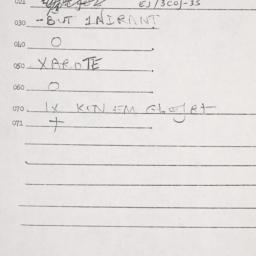 021 EJ/3COJ-35
030 -BUT 1NIRANT
040 O
050 XAROTE
060 O
070 1X KINEM
071 +